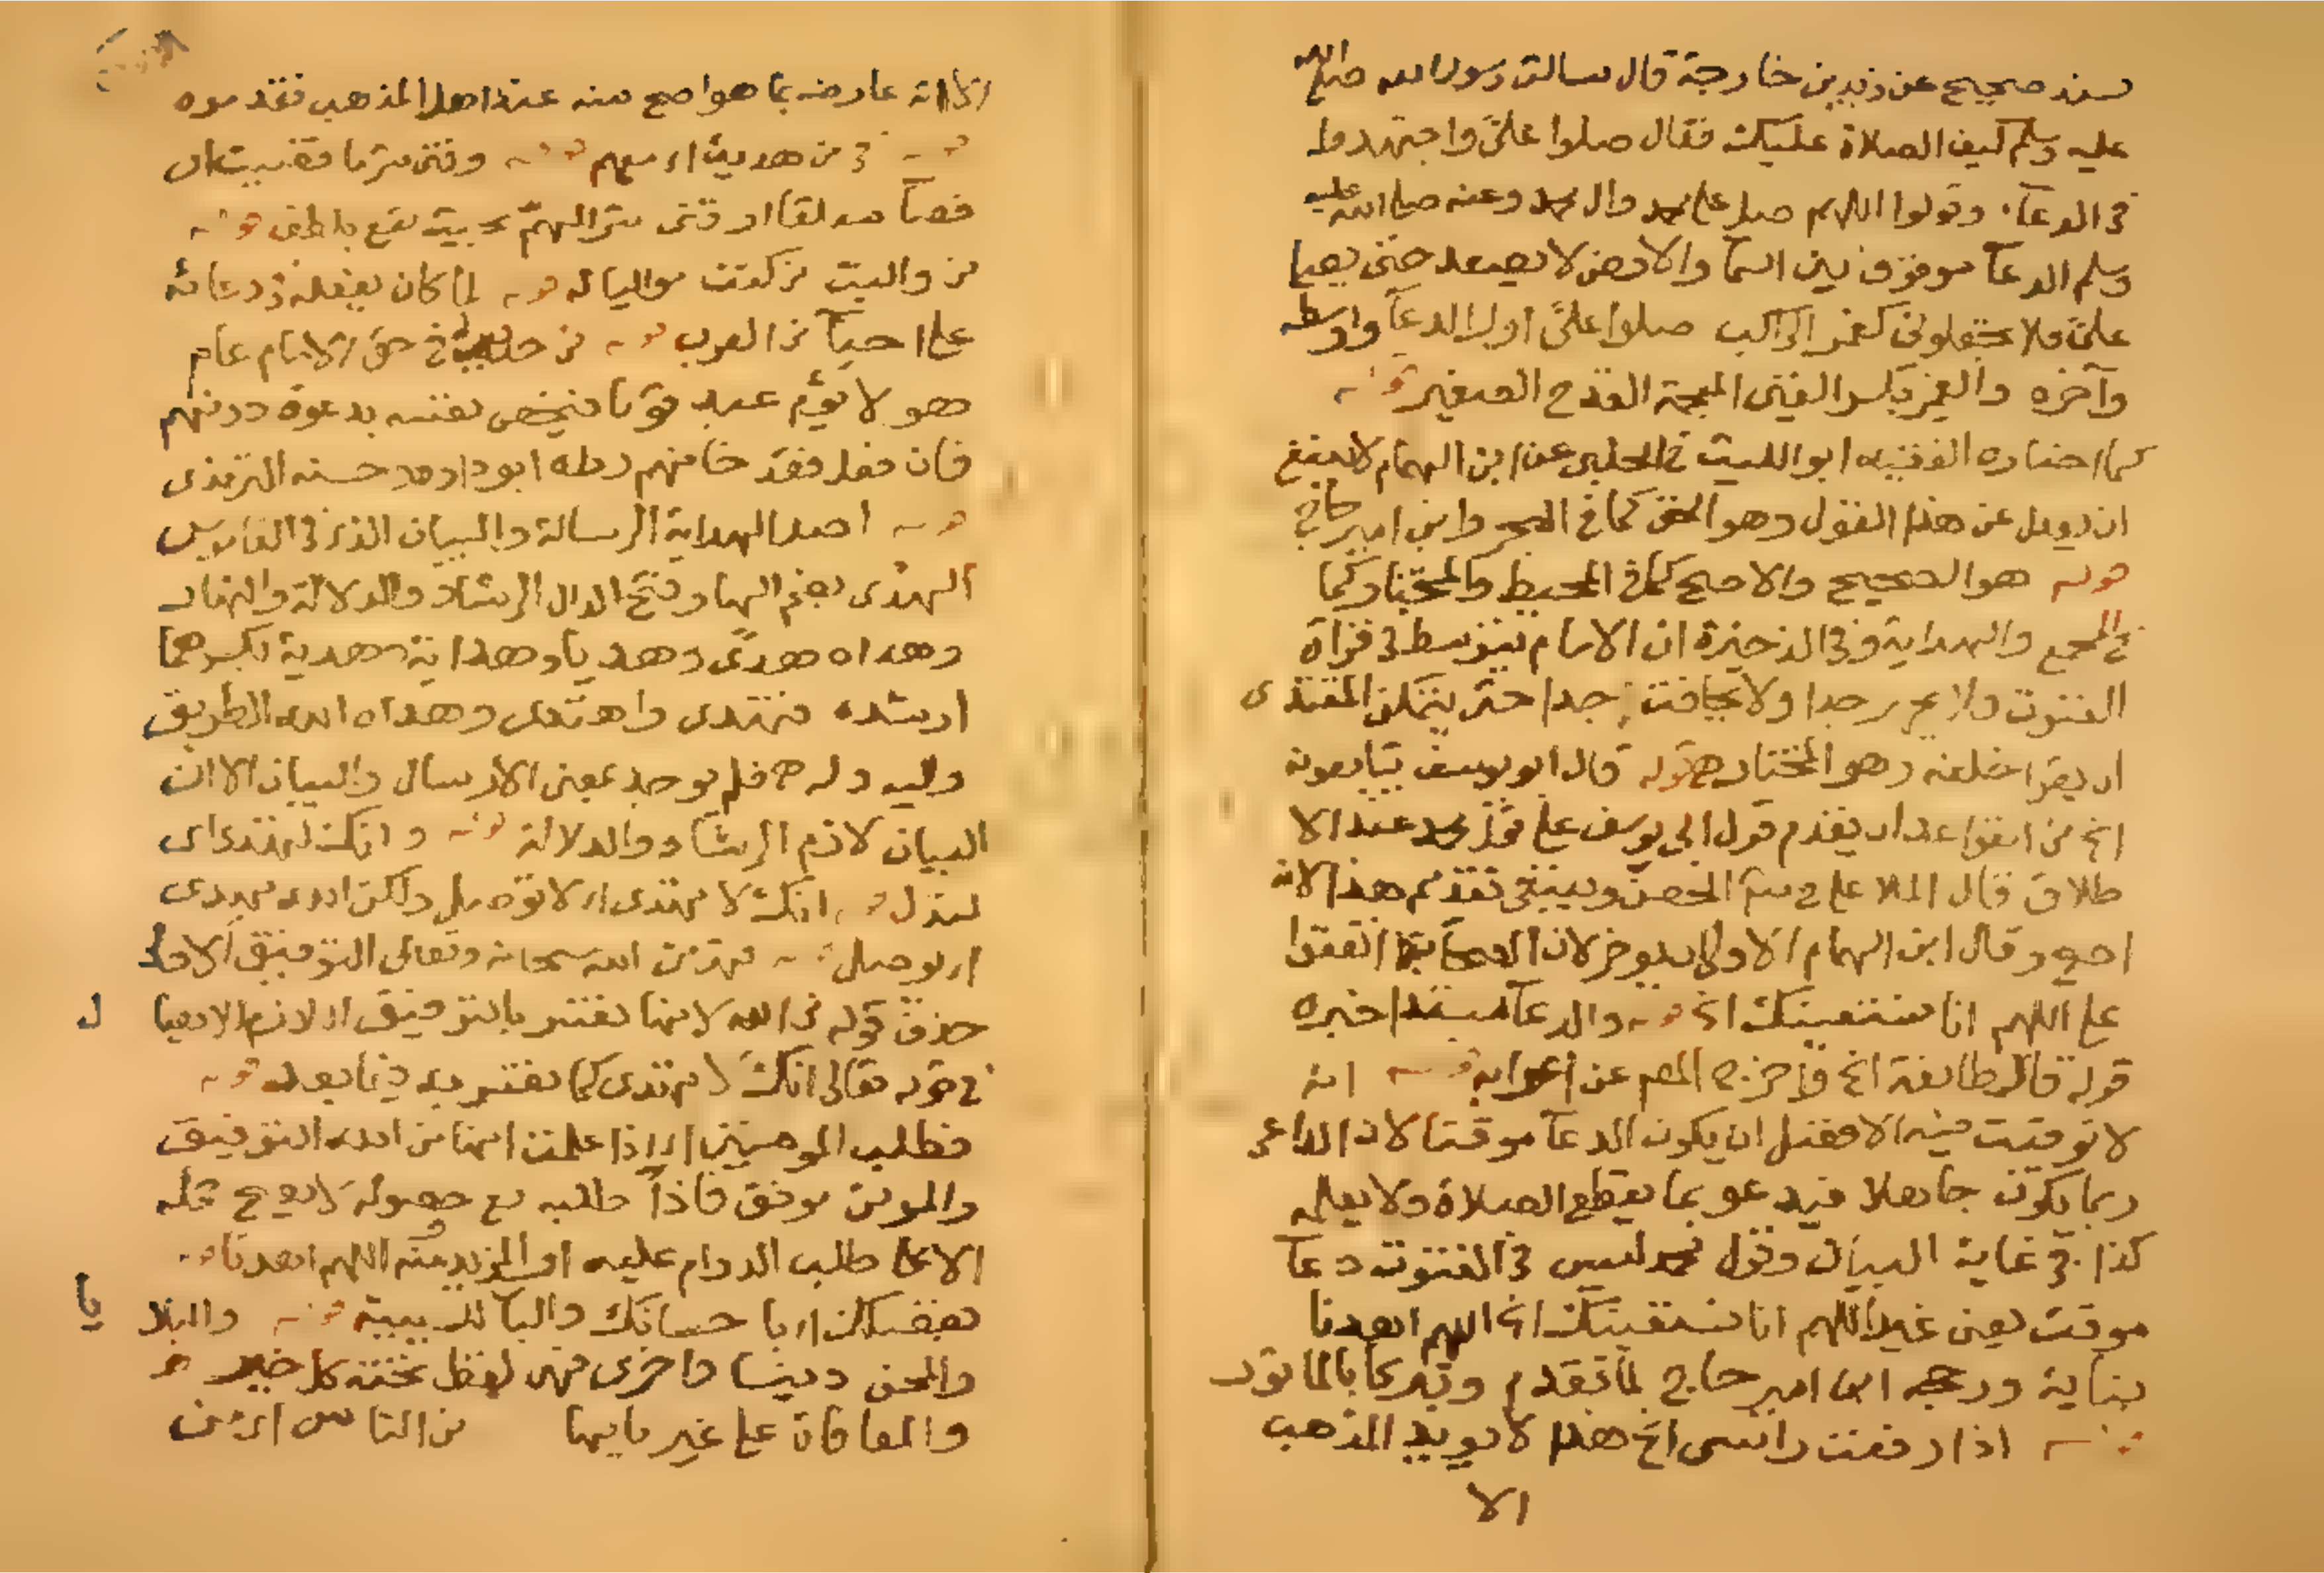 بسند صحيح عن زيد بن خارجة قال سالت رسول الله صلى الله
عليه وسلم كيف الصلاة عليك فقال صلوا علىّ واجتهدوا
فى الدعآء وقولوا اللهم صل على محمد وال محمد وعنه صلى الله عليه
وسلم الدعآ موقوف بين السمآ والارض لا يصعد حتى يصلى
علىّ فلا تجعلونى كغمر الراكب صلوا علىّ اول الدعآ واوسطه
وآخره والغمر بكسر الغين المعجمة القدح الصغير قوله
كما اختاره الفقيه ابو الليث فى الحلبى عن ابن الهمام لا ينبغى
ان يعدل عن هذا القول وهو الحق كما فى البحر وابن امير حاج
قوله هو الصحيح والاصح كما فى المحيط والمختار كما
فى المجمع والهداية وفى الذخيرة ان الامام يتوسط فى قراة
القنوت ولا يجهر جدا ولا يخافت جدا حتى يتمكن المقتدى
ان يقرا خلفه وهو المختار قوله قال ابو يوسف يتابعونه
الخ من القواعد ان يقدم قول ابى يوسف على قول محمد عند الا
طلاق قال الملا على فى شرح الحصن وينبغى تقديم هذا لانه
اصح وقال ابن الهمام الاولى ان يؤخر لان الصحابة اتفقوا
على اللهم انا نستعينك الخ قوله والدعآ مبتدا خبره
قوله قال طائفة الخ واخرج المص عن اعرابه قوله انه
لا توقيت فيه الافضل ان يكون الدعآ موقتا لان الداعى
ربما يكون جاهلا فيدعو بما يقطع الصلاة ولا يعلمه
كذا فى غاية البيان وقول محمد ليس فى القنوت دعآ
موقت يعنى غير اللهم انا نستعينك الخ اللهم اهدنا
بناية ورجحه ابن امير حاج لما تقدم وتبركا بالماثور
قوله اذا رفعت راسى الخ هذا لا يويد المذهب
الا
الا انه عارضه بما هو اصح منه عند اهل المذهب فقدموه
قوله فى من هديت اى معهم قوله وقنى شر ما قضيت اى
قضآ
قوله
من واليت من كعتت موالياله قوله لما كان يفعله من دعائه
على احيآ من العرب قوله من حديث فى حق الامام عام
هو لا يؤم عبد قوما فيخص نفسه بدعوة دونهم
فان فعل فقد خانهم رواه ابو داود وحسنه الترمذى
قوله اصل الهداية الرسالة والبيان الذى فى القاموس
الهدى بضم الها وفتح الدال الرشاد والدلالة والنهار
وهداه هدى وهديا وهداية وهدية بكسرهما
ارشده فهتدى واهتدى وهداه الله الطريق
واليه وله اه فلم يوجد بمعنى الارسال والبيان الا ان
البيان لازم الرشاد والدلالة قوله وانك لتهتدى اى
لتدل قوله انك لا تهتدى اى لا توصل ولكن الله يهدى
اى يوصل قوله فهو من الله سبحانه وتعالى التوفيق الاولى
حذف قوله من الله لانها تفسر بالتوفيق اللازم للايصال
فى قوله تعالى انك لا تهتدى كما تفسر به فيما بعد قوله
فطلب المومنين اى اذا علمت انها من الله التوفيق
والمومن موفق فاذاً طلبه مع حصوله لا يصح حمله
الا على طلب الدوام عليه او المزيد منه اللهم اهدنا قوله
بفضلك اى باحسانك والبآ للسببية قوله والبلايا
والمحن دينا واخرى فهى لفظ تحته كل خير
والمعافاة على غير بابها من الناس اى من